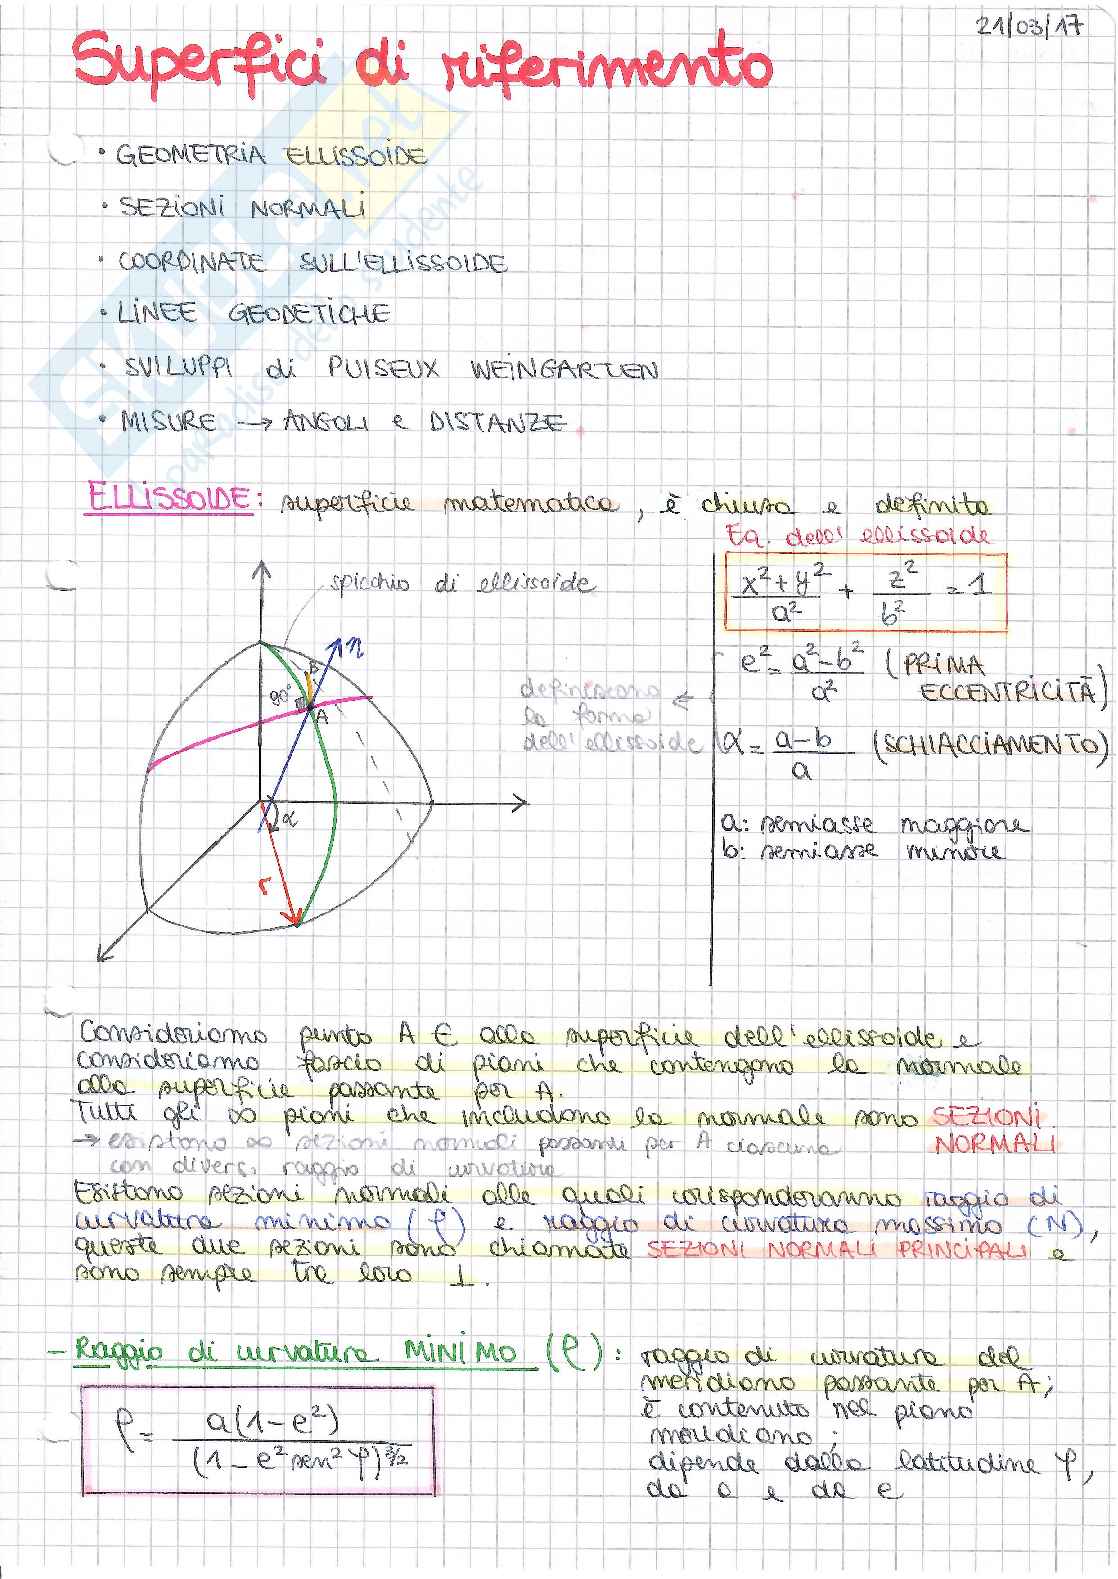 21/03/17
Superfici di riferimento
• GEOMETRIA ELLISSOIDE
• SEZIONI NORMALI
• COORDINATE SULL'ELLISSOIDE
• LINEE GEODETICHE
• SVILUPPI di PUISEUX WEINGARTEN
• MISURE → ANGOLI e DISTANZE
ELLISSOIDE: superficie matematica, è chiusa e definita
Eq. dell'ellissoide
x²+y²/a² + z²/b² = 1
e² = a²-b²/a² (PRIMA
ECCENTRICITÀ)
α = a-b/a (SCHIACCIAMENTO)
a: semiasse maggiore
b: semiasse minore
definiscono
la forma
dell'ellissoide
spicchio di ellissoide
n
B
90°
A
α
r
Consideriamo punto A ∈ alla superficie dell'ellissoide e
consideriamo fascio di piani che contengono la normale
alla superficie passante per A.
Tutti gli ∞ piani che includono la normale sono SEZIONI
NORMALI
→ esistono ∞ sezioni normali passanti per A ciascuna
con diversi raggio di curvatura
Esistono sezioni normali alle quali corrisponderanno raggio di
curvatura minimo (ρ) e raggio di curvatura massimo (N),
queste due sezioni sono chiamate SEZIONI NORMALI PRINCIPALI e
sono sempre tra loro ⊥.
- Raggio di curvatura MINIMO (ρ): raggio di curvatura del
meridiano passante per A;
è contenuto nel piano
meridiano;
dipende dalla latitudine φ,
da a e da e
ρ = a(1-e²)/(1-e² sen² φ)^3/2